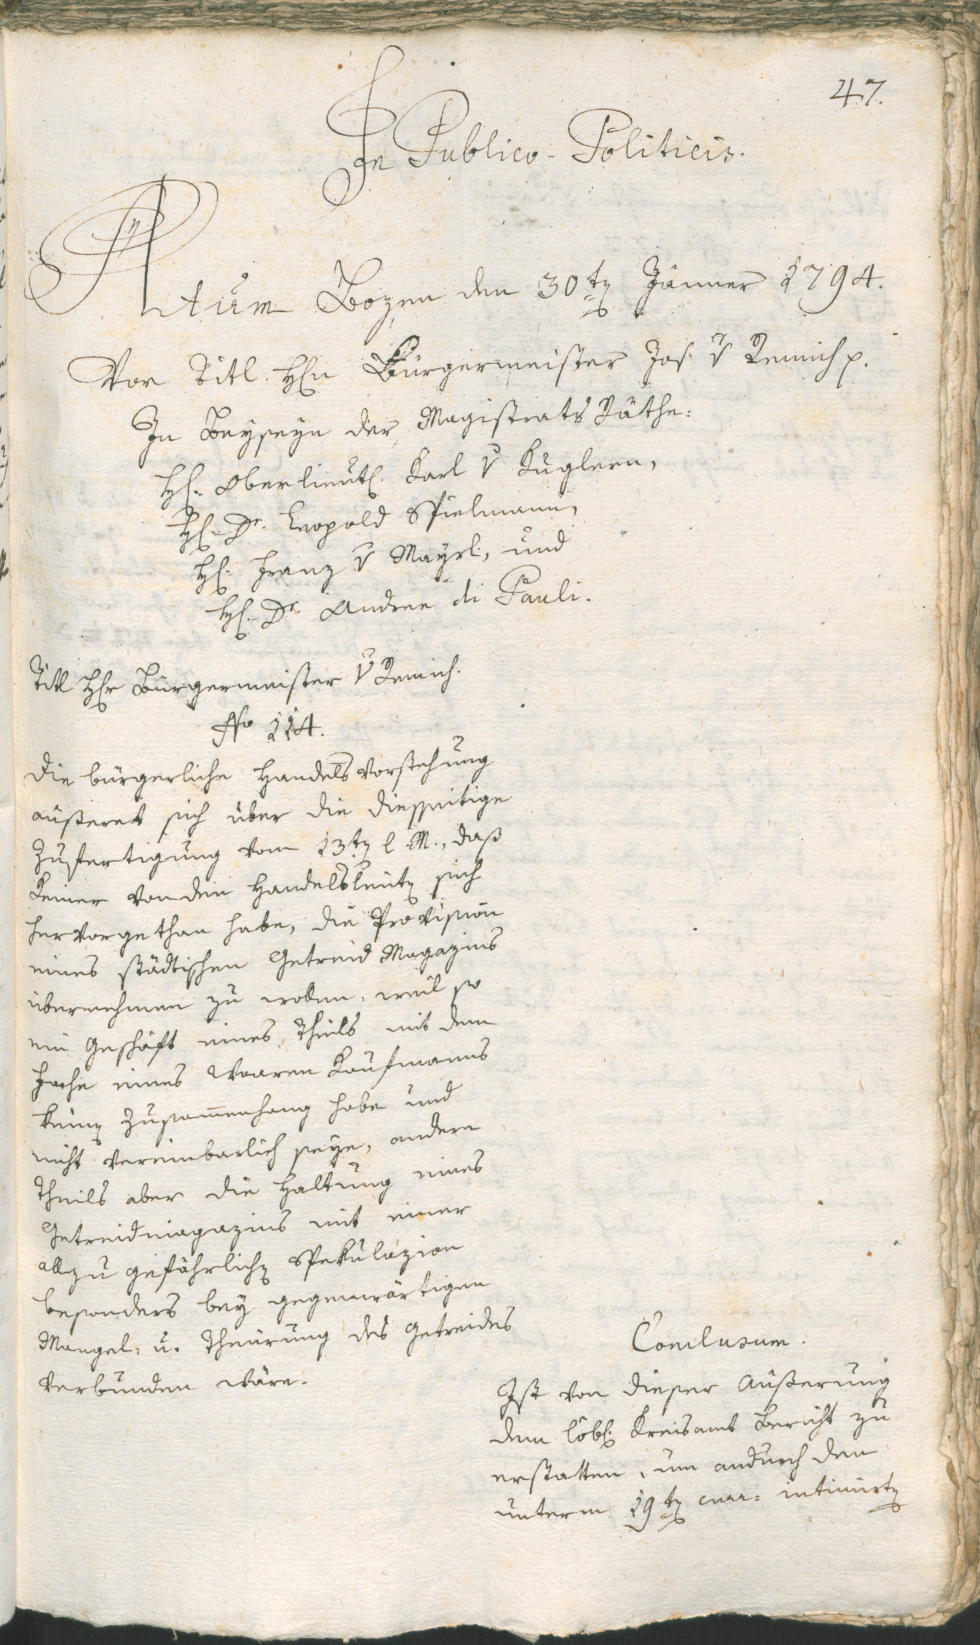 47.
In Publico-Politicis.
Actum Bozen den 30ten Jänner 1794.
Vor Titl. Hℓn Bürgermeister Jos: v Remich p.
In Beyseyn der Magistrats Räthe:
Hℓ. Oberlieutℓ. Karl v Kuglern,
Hℓ. Dr. Leopold Spielmann,
Hℓ. Franz v Mayrl, und
Hℓ. Dr. Andree di Pauli.
Titl Hℓr Bürgermeister v Remich.
No 114.
Die bürgerliche Handelsvorstehung
äußeret sich über die diesseitige
Zufertigung vom 13ten l. M., daß
keiner von den Handelsleuten sich
hervorgethan habe, die Provision
eines städtischen Getreid Magazins
übernehmen zu wollen, weil so
ein Geschäft eines Theils mit dem
Fache eines Waaren Kaufmanns
keinen Zusam̄enhang habe und
nicht vereinbarlich seye, andern
Theils aber die Haltung eines
Getreidmagazins mit einer
allzu gefährlichen Spekulazion
besonders bey gegenwärtigen
Mangel, u. Theürung des Getreides
verbunden wäre.
Conclusum.
Ist von dieser Äußerung
dem löbℓ. Kreisamt Bericht zu
erstatten, um andurch den
unterm 19ten curr: intimirten